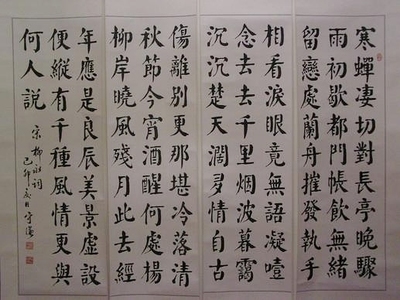 寒蟬凄切對長亭晚驟
雨初歇都門帳飲無緒
留戀處蘭舟摧發執手
相看淚眼竟無語凝噎
念去去千里烟波暮靄
沉沉楚天濶多情自古
傷離別更那堪冷落清
秋節今宵酒醒何處楊
柳岸曉風殘月此去經
年應是良辰美景虛設
便縱有千種風情更與
何人說
宋柳永詞
己卯夏日